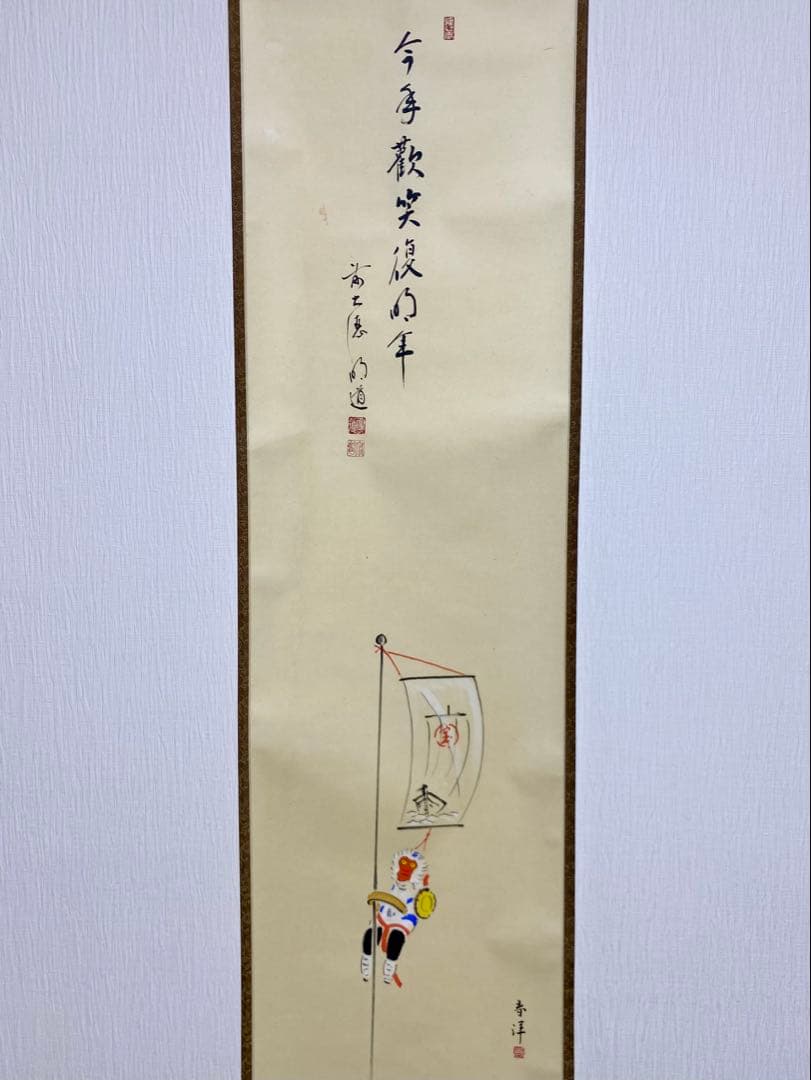 今年歡笑復明年
前大德 明道
春洋